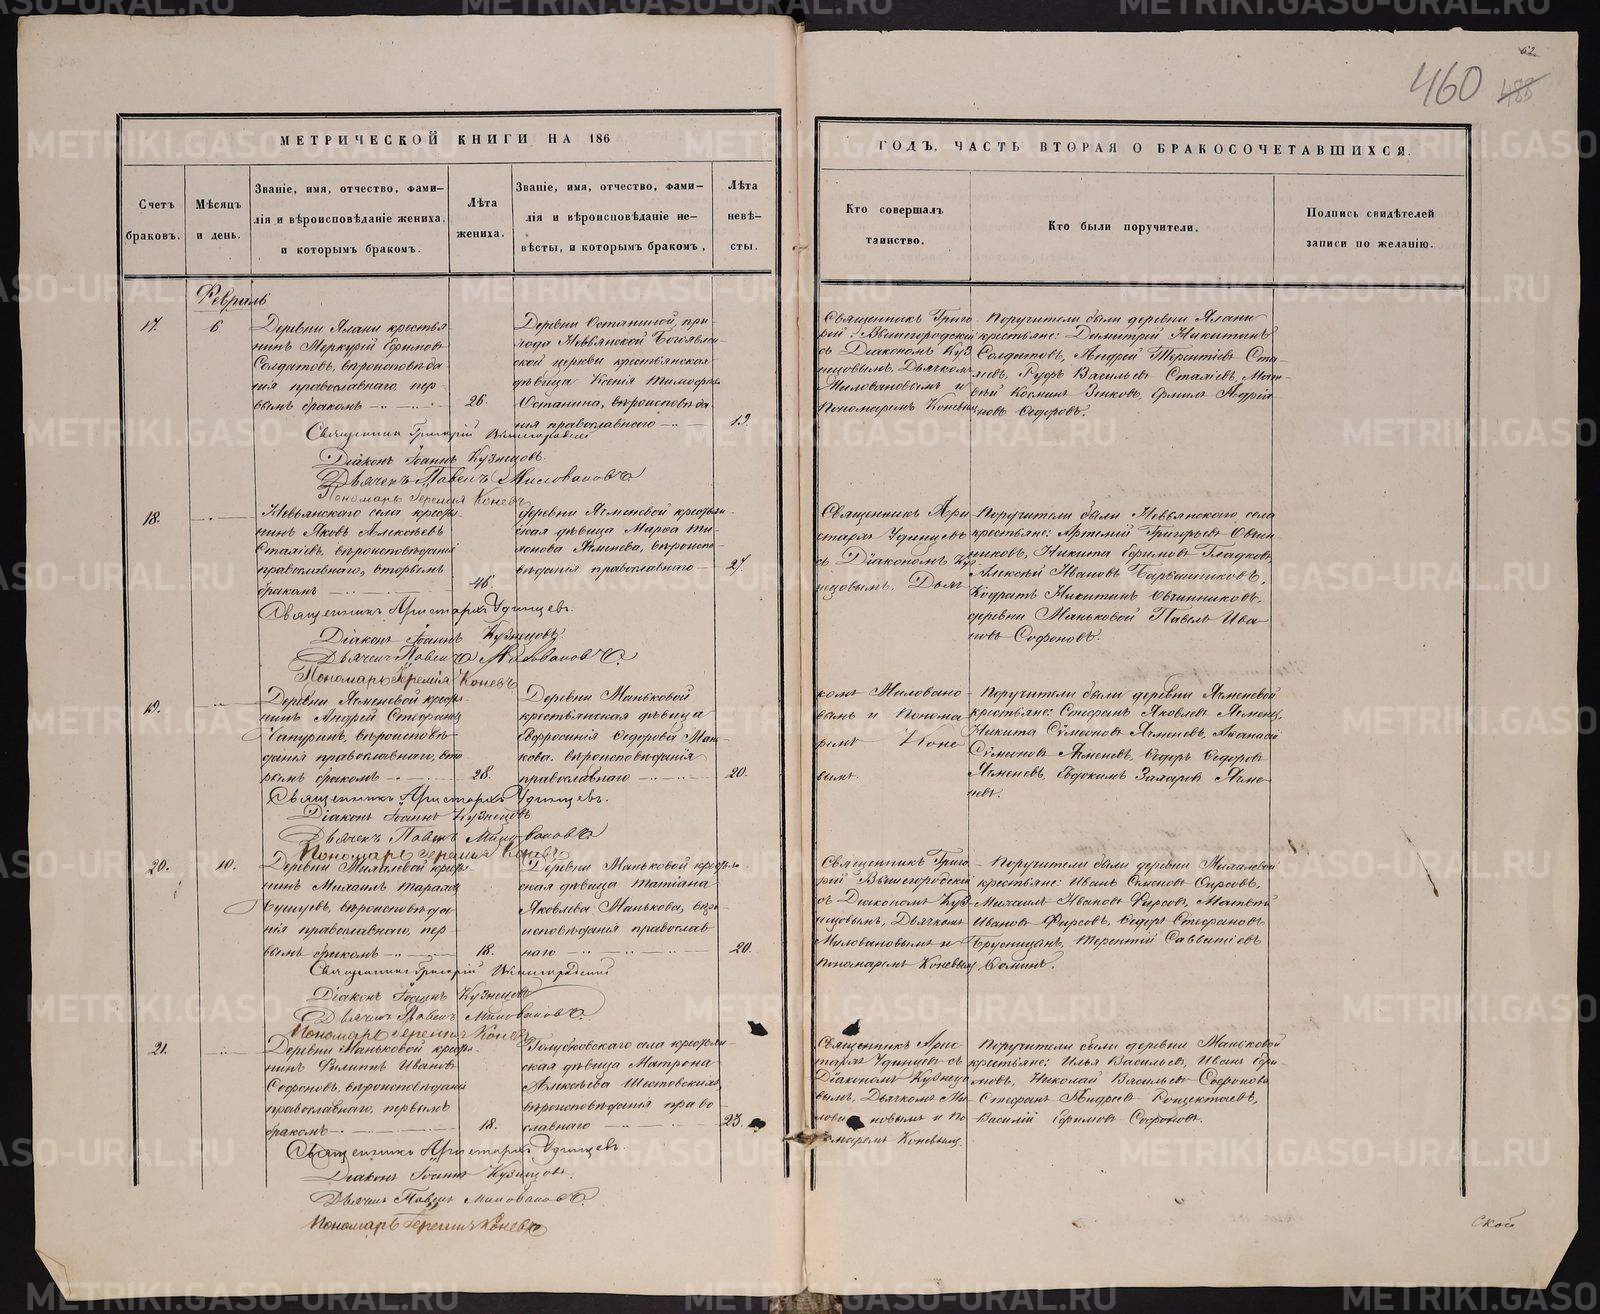 62
460
488
МЕТРИЧЕСКОЙ КНИГИ НА 186
ГОДЪ, ЧАСТЬ ВТОРАЯ О БРАКОСОЧЕТАВШИХСЯ.
Счетъ
браковъ.
Мѣсяцъ
и день.
Званіе, имя, отчество, фами-
лія и вѣроисповѣданіе жениха,
и которымъ бракомъ.
Лѣта
жениха.
Званіе, имя, отчество, фами-
лія и вѣроисповѣданіе не-
вѣсты, и которымъ бракомъ,
Лѣта
невѣ-
сты.
Кто совершалъ
таинство.
Кто были поручители.
Подпись свидѣтелей
записи по желанію.
Февраль
17.
6
Деревни Ялани крестья-
нинъ Меркурій Ефимовъ
Солдатовъ, вѣроисповѣда-
нія православнаго, пер-
вымъ бракомъ
26.
Деревни Останиной, при-
хода Невьянской Богоявлен-
ской церкви крестьянская
дѣвица Ксенія Тимофеева
Останина, вѣроисповѣда-
нія православнаго
19.
Священникъ Григо-
рій Вышегородскій
съ Діакономъ Куз-
нецовымъ, Дьячкомъ
Миловановымъ и
Пономаремъ Коневымъ
Поручители были деревни Ялани
крестьяне: Димитрій Никитинъ
Солдатовъ, Андрей Терентіевъ
Руфъ Васильевъ
Косминъ
Федоровъ.
Священникъ Григорій Вышегородскій
Діаконъ Іоаннъ Кузнецовъ.
Дьячекъ Павелъ Миловановъ
Пономарь Іеремія Коневъ
18.
Невьянскаго села крестья-
нинъ Яковъ Алексѣевъ
вѣроисповѣданія
православнаго, вторымъ
бракомъ
46.
Деревни Ячменевой крестьян-
ская дѣвица Марѳа Ти-
хонова Ячменева, вѣроиспо-
вѣданія православнаго
27.
Священникъ Ари-
стархъ Удинцевъ
съ Діакономъ Куз-
нецовымъ, Дьяч-
Поручители были Невьянскаго села
крестьяне: Артемій Григорьевъ Овчин-
никовъ, Никита Ефимовъ Гладковъ,
Алексѣй Ивановъ
Кодратъ Никитинъ Овчинниковъ,
деревни Маньковой Павелъ Ива-
новъ Софоновъ.
Священникъ Аристархъ Удинцевъ.
Діаконъ Іоаннъ Кузнецовъ.
Дьячекъ Павелъ Миловановъ.
Пономарь Іеремія Коневъ
19.
Деревни Ячменевой крестья-
нинъ Андрей Стефановъ
Чапуринъ, вѣроисповѣ-
данія православнаго, вто-
рымъ бракомъ
28.
Деревни Маньковой
крестьянская дѣвица
Евфросинія Федорова Мань-
кова, вѣроисповѣданія
православнаго
20.
комъ Миловано-
вымъ и Понома-
ремъ Коне-
вымъ.
Поручители были деревни Ячменевой
крестьяне: Стефанъ Яковлевъ Ячменевъ,
Никита Сѵмеоновъ Ячменевъ, Аѳанасій
Сѵмеоновъ Ячменевъ, Федоръ Федоровъ
Ячменевъ, Евдокимъ Захаровъ Ячме-
невъ.
Священникъ Аристархъ Удинцевъ.
Діаконъ Іоаннъ Кузнецовъ
Дьячекъ Павелъ Миловановъ
Пономарь Іеремія Коневъ
20.
10.
Деревни Михалевой крестья-
нинъ Михаилъ Тарасовъ
вѣроисповѣда-
нія православнаго, пер-
вымъ бракомъ
18.
Деревни Маньковой крестьян-
ская дѣвица Татіана
Яковлева Манькова, вѣро-
исповѣданія православ-
наго
20.
Священникъ Григо-
рій Вышегородскій
съ Діакономъ Куз-
нецовымъ, Дьячкомъ
Миловановымъ и
Пономаремъ Коневымъ
Поручители были деревни Михалевой
крестьяне: Иванъ
Михаилъ Ивановъ Фирсовъ, Матвѣй
Ивановъ Фирсовъ, Федоръ Стефановъ
Брусницынъ, Терентій Савватіевъ
Фоминъ.
Священникъ Григорій Вышегородскій
Діаконъ Іоаннъ Кузнецовъ
Дьячекъ Павелъ Миловановъ.
Пономарь Іеремія Коневъ
21.
Деревни Маньковой крестья-
нинъ Филиппъ Ивановъ
Софоновъ, вѣроисповѣданія
православнаго, первымъ
бракомъ
18.
Голубковскаго села крестьян-
ская дѣвица Матрона
Алексѣева Шестовскихъ
вѣроисповѣданія право-
славнаго
23.
Священникъ Арис-
тархъ Удинцевъ съ
Діакономъ Кузнецо-
вымъ, Дьячкомъ Ми-
ловановымъ и По-
номаремъ Коневымъ.
Поручители были деревни Маньковой
крестьяне: Илья Васильевъ, Иванъ Ефи-
мовъ, Николай Васильевъ Софоновы
Стефанъ Андреевъ
Василій Ефимовъ Софоновъ.
Священникъ Аристархъ Удинцевъ.
Діаконъ Іоаннъ Кузнецовъ.
Дьячекъ Павелъ Миловановъ
Пономарь Іеремія Коневъ
Ской
METRIKI.GASO-URAL.RU